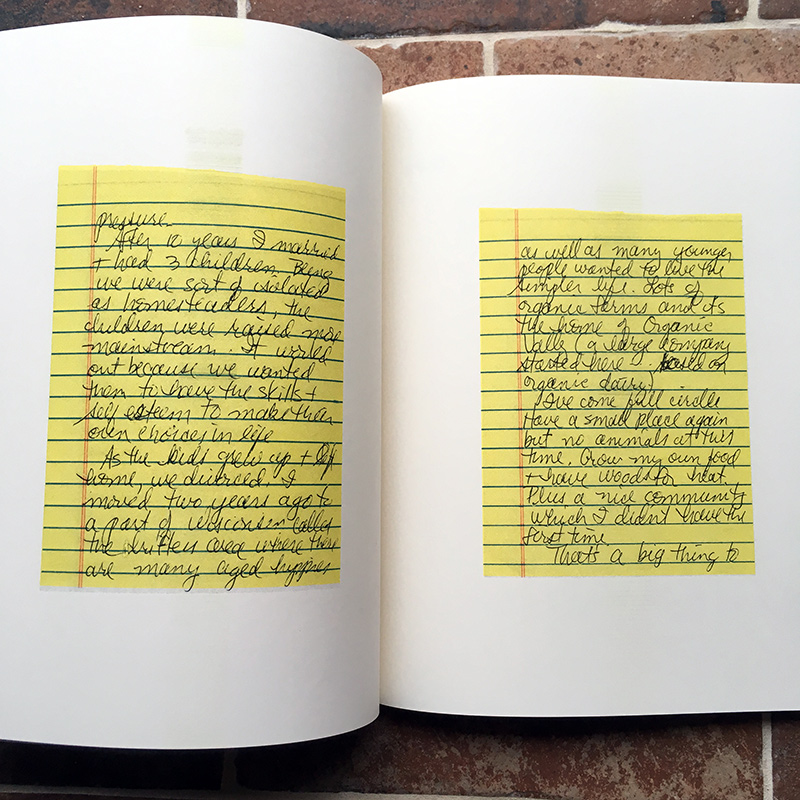 pressure.
After 10 years I married
+ had 3 children. Being
we were sort of isolated
as homesteaders, the
children were raised more
mainstream. It worked
out because we wanted
them to have the skills +
self esteem to make their
own choices in life
As the kids grew up + left
home, we divorced. I
moved two years ago to
a part of wisconsin called
the driftless area where there
are many aged hippies
as well as many younger
people wanted to live the
simpler life. Lots of
organic farms and its
the home of Organic
Valle (a large company
started here - based on
organic dairy)
I've come full circle
Have a small place again
but no animals at this
time. Grow my own food
+ have woods for heat.
Plus a nice community
which I didn't have the
first time
That's a big thing to